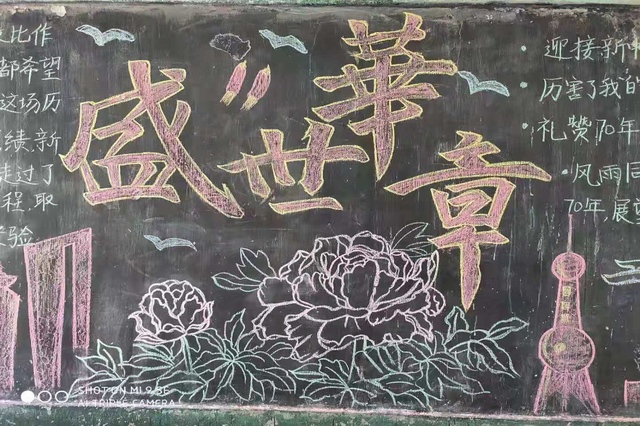 比作
都希望
这场历
绩新
走过了
程取
验
盛世華章
迎接新
厉害了我
礼赞70年
风雨同
70年展
SHOT ON MI 9 SE
AI TRIPLE CAMERA